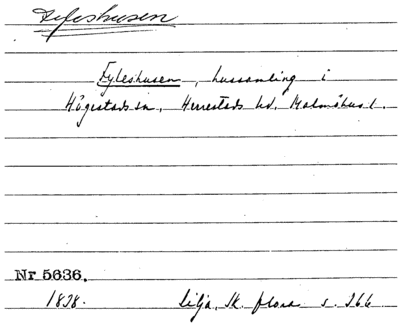 Fyleshusen
Fyleshusen, hussamling i
Högestads sn, Herrestads hd, Malmöhus l.
Nr 5636.
1838.
Lilja, Sk. flora s. 266